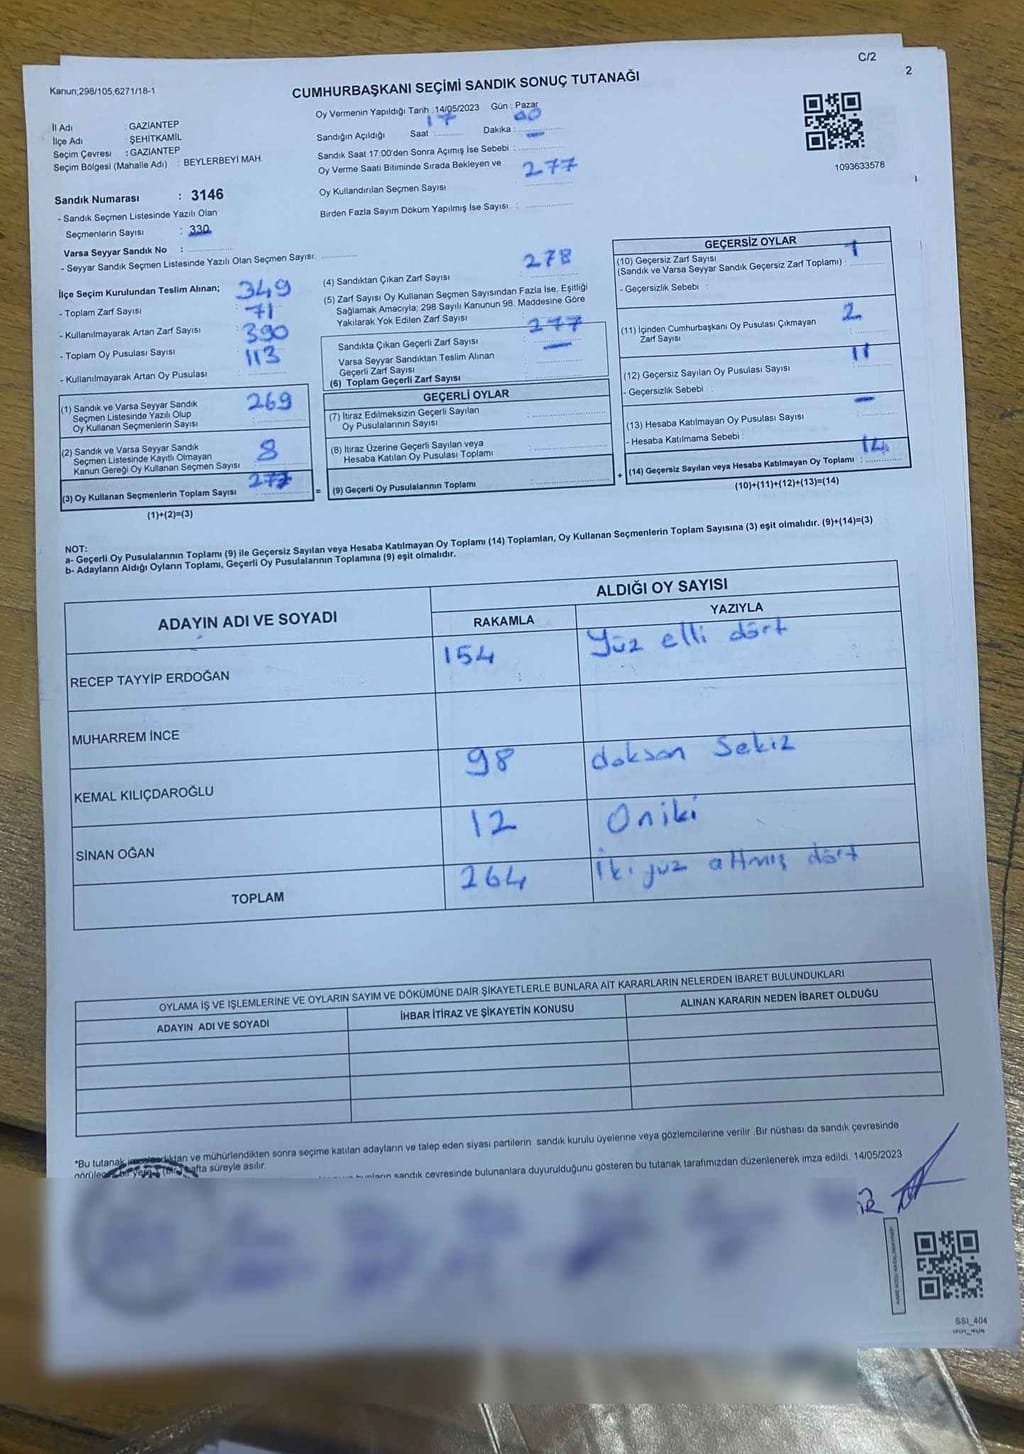 C/2
2
Kanun,298/105,6271/18-1
CUMHURBAŞKANI SEÇİMİ SANDIK SONUÇ TUTANAĞI
İl Adı : GAZİANTEP
İlçe Adı : ŞEHİTKAMİL
Seçim Çevresi : GAZİANTEP
Seçim Bölgesi (Mahalle Adı) : BEYLERBEYİ MAH
Sandık Numarası : 3146
- Sandık Seçmen Listesinde Yazılı Olan
Seçmenlerin Sayısı : 330
Varsa Seyyar Sandık No :
- Seyyar Sandık Seçmen Listesinde Yazılı Olan Seçmen Sayısı:
Oy Vermenin Yapıldığı Tarih : 14/05/2023 Gün : Pazar
Sandığın Açıldığı Saat : 17 Dakika : 00
Sandık Saat 17:00'den Sonra Açımış İse Sebebi : —
Oy Verme Saati Bitiminde Sırada Bekleyen ve
Oy Kullandırılan Seçmen Sayısı : 277
Birden Fazla Sayım Döküm Yapılmış İse Sayısı :
1093633578
İlçe Seçim Kurulundan Teslim Alınan;
- Toplam Zarf Sayısı : 349
- Kullanılmayarak Artan Zarf Sayısı : 71
- Toplam Oy Pusulası Sayısı : 390
- Kullanılmayarak Artan Oy Pusulası : 113
(1) Sandık ve Varsa Seyyar Sandık
Seçmen Listesinde Yazılı Olup
Oy Kullanan Seçmenlerin Sayısı : 269
(2) Sandık ve Varsa Seyyar Sandık
Seçmen Listesinde Kayıtlı Olmayan
Kanun Gereği Oy Kullanan Seçmen Sayısı : 8
(3) Oy Kullanan Seçmenlerin Toplam Sayısı : 277
(1)+(2)=(3)
(4) Sandıktan Çıkan Zarf Sayısı : 278
(5) Zarf Sayısı Oy Kullanan Seçmen Sayısından Fazla İse, Eşitliği
Sağlamak Amacıyla; 298 Sayılı Kanunun 98. Maddesine Göre
Yakılarak Yok Edilen Zarf Sayısı :
Sandıkta Çıkan Geçerli Zarf Sayısı : 277
Varsa Seyyar Sandıktan Teslim Alınan
Geçerli Zarf Sayısı : —
(6) Toplam Geçerli Zarf Sayısı :
GEÇERLİ OYLAR
(7) İtiraz Edilmeksizin Geçerli Sayılan
Oy Pusulalarının Sayısı
(8) İtiraz Üzerine Geçerli Sayılan veya
Hesaba Katılan Oy Pusulası Toplamı
= (9) Geçerli Oy Pusulalarının Toplamı :
GEÇERSİZ OYLAR
(10) Geçersiz Zarf Sayısı
(Sandık ve Varsa Seyyar Sandık Geçersiz Zarf Toplamı) : 1
- Geçersizlik Sebebi :
(11) İçinden Cumhurbaşkanı Oy Pusulası Çıkmayan
Zarf Sayısı : 2
(12) Geçersiz Sayılan Oy Pusulası Sayısı : 11
- Geçersizlik Sebebi :
(13) Hesaba Katılmayan Oy Pusulası Sayısı : —
- Hesaba Katılmama Sebebi :
+ (14) Geçersiz Sayılan veya Hesaba Katılmayan Oy Toplamı : 14
(10)+(11)+(12)+(13)=(14)
NOT:
a- Geçerli Oy Pusulalarının Toplamı (9) ile Geçersiz Sayılan veya Hesaba Katılmayan Oy Toplamı (14) Toplamları, Oy Kullanan Seçmenlerin Toplam Sayısına (3) eşit olmalıdır. (9)+(14)=(3)
b- Adayların Aldığı Oyların Toplamı, Geçerli Oy Pusulalarının Toplamına (9) eşit olmalıdır.
ADAYIN ADI VE SOYADI
ALDIĞI OY SAYISI
RAKAMLA YAZIYLA
RECEP TAYYİP ERDOĞAN 154 Yüz elli dört
MUHARREM İNCE
KEMAL KILIÇDAROĞLU 98 doksan Sekiz
SİNAN OĞAN 12 Oniki
TOPLAM 264 İki yuz altmış dört
OYLAMA İŞ VE İŞLEMLERİNE VE OYLARIN SAYIM VE DÖKÜMÜNE DAİR ŞİKAYETLERLE BUNLARA AİT KARARLARIN NELERDEN İBARET BULUNDUKLARI
ADAYIN ADI VE SOYADI İHBAR İTİRAZ VE ŞİKAYETİN KONUSU ALINAN KARARIN NEDEN İBARET OLDUĞU
*Bu tutanak ve mühürlendikten sonra seçime katılan adayların ve talep eden siyasi partilerin sandık kurulu üyelerine veya gözlemcilerine verilir .Bir nüshası da sandık çevresinde
hafta süreyle asılır.
bunların sandık çevresinde bulunanlara duyurulduğunu gösteren bu tutanak tarafımızdan düzenlenerek imza edildi. 14/05/2023
SSI_404